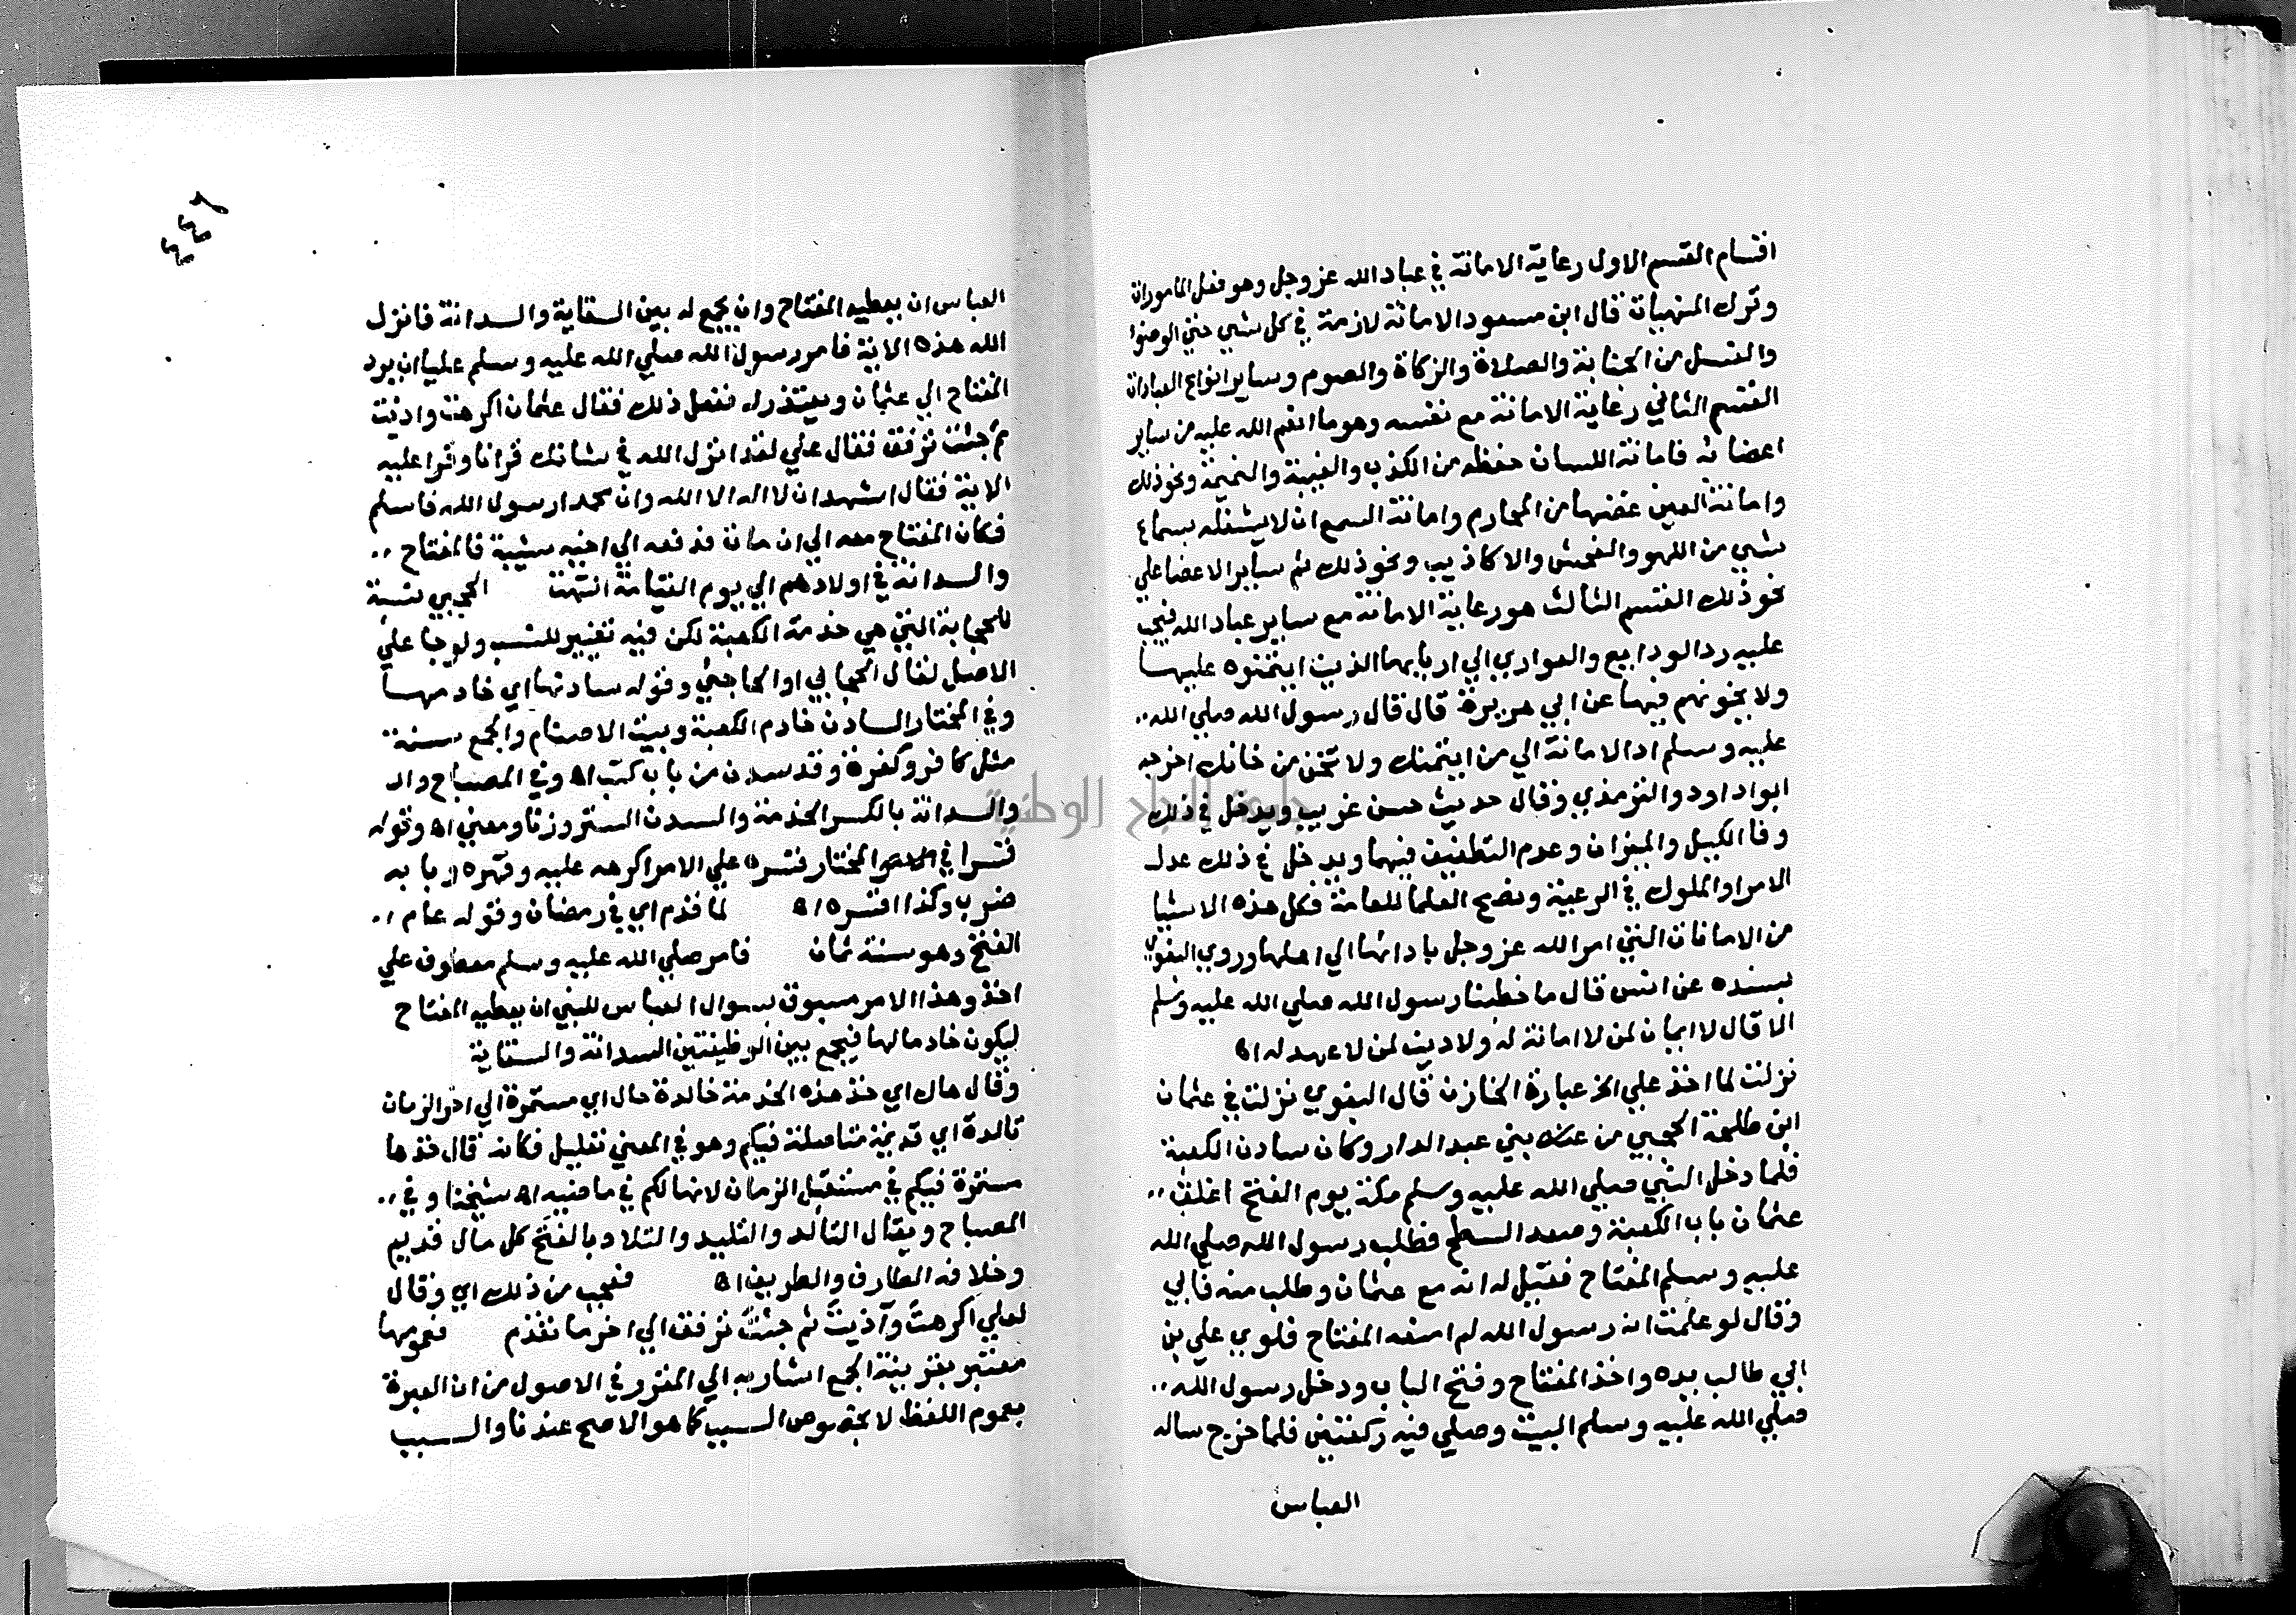 اقسام القسم الاول رعاية الامانة في عباد الله عز وجل وهو فعل المامورات
وترك المنهيات قال ابن مسعود الامانة لازمة في كل شي حتي الوضوا
والغسل من الجنابة والصلاة والزكاة والصوم وساير انواع العبادات
القسم الثاني رعاية الامانة مع نفسه وهو ما انعم الله عليه من ساير
اعضائه فامانة اللسان حفظه من الكذب والغيبة والنميمة ونحو ذلك
وامانة العين غضها من المحارم وامانة السمع ان لا يشغله بسماع
شي من اللهو والفحش والاكاذيب ونحو ذلك ثم ساير الاعضا علي
نحو ذلك القسم الثالث هو رعاية الامانة مع ساير عباد الله فيجب
عليه رد الودايع والعواري الي اربابها الذين ايتمنوه عليها
ولا يخونهم فيها عن ابي هريرة قال قال رسول الله صلي الله
عليه وسلم اد الامانة الي من ايتمنك ولا تخن من خانك اخرجه
ابو داود والترمذي وقال حديث حسن غريب ويدخل في ذلك
وفا الكيل والميزان وعدم التطفيف فيهما ويدخل في ذلك عدل
الامرا والملوك في الرعية ونصح العلما للعامة فكل هذه الاشيا
من الامانات التي امر الله عز وجل بادائها الي اهلها وروي البغوي
بسنده عن انس قال ما خطبنا رسول الله صلي الله عليه وسلم
الا قال لا ايمان لمن لا امانة له ولا دين لمن لا عهد له اه
نزلت لما اخذ علي الخ عبارة الخازن قال البغوي نزلت في عثمان
ابن طلحة الحجبي من بني عبد الدار وكان سادن الكعبة
فلما دخل النبي صلي الله عليه وسلم مكة يوم الفتح اغلق
عثمان باب الكعبة وصعد السطح فطلب رسول الله صلي الله
عليه وسلم المفتاح فقيل له انه مع عثمان وطلب منه فابي
وقال لو علمت انه رسول الله لم امنعه المفتاح فلوي علي بن
ابي طالب يده واخذ المفتاح وفتح الباب ودخل رسول الله
صلي الله عليه وسلم البيت وصلي فيه ركعتين فلما خرج ساله
العباس
٤٤٦
العباس ان يعطيه المفتاح وان يجمع له بين السقاية والسدانة فانزل
الله هذه الاية فامر رسول الله صلي الله عليه وسلم عليا ان يرد
المفتاح الي عثمان ويعتذر له ففعل ذلك فقال عثمان اكرهت واذيت
ثم جئت ترفق فقال علي لقد انزل الله في شانك قرانا وقرا عليه
الاية فقال اشهد ان لا اله الا الله وان محمدا رسول الله فاسلم
فكان المفتاح معه الي ان مات فدفعه الي اخيه شيبة فالمفتاح
والسدانة في اولادهم الي يوم القيامة انتهت الحجبي نسبة
للحجابة التي هي خدمة الكعبة لكن فيه تغيير للنسب ولو جا علي
الاصل لقال الحجابي او الحاجبي وقوله سادنها اي خادمها
وفي المختار السادن خادم الكعبة وبيت الاصنام والجمع سدنة
مثل كافر وكفرة وقد سدن من باب كتب اه وفي المصباح وال
والسدانة بالكسر الخدمة والسدن الستر وزنا ومعني اه وقوله
قسرا في المختار قسره علي الامر اكرهه عليه وقهره وبابه
ضرب وكذا اقتسره اه لما قدم اي في رمضان وقوله عام
الفتح وهو سنة ثمان فامر صلي الله عليه وسلم معطوف علي
اخذ وهذا الامر مسبوق بسوال العباس للنبي ان يعطيه المفتاح
ليكون خادما لها فيجمع بين الوظيفتين السدانة والسقاية
وقال هاك اي خذ هذه الخدمة خالدة حال اي مستمرة الي اخر الزمان
تالدة اي قديمة متاصلة فيكم وهو في المعني تعليل فكانه قال خذها
مستمرة فيكم في مستقبل الزمان لانها لكم في ماضيه اه شيخنا وفي
المصباح ويقال التالد والتليد والتلاد بالفتح كل مال قديم
وخلافه الطارف والطريف اه فعجب من ذلك اي وقال
لعلي اكرهت وآذيت ثم جئت ترفق الي اخر ما تقدم فعمومها
معتبر بقرينة الجمع اشار به الي المقرر في الاصول من ان العبرة
بعموم اللفظ لا بخصوص السبب كما هو الاصح عندنا والسبب
جامعة النجاح الوطنية